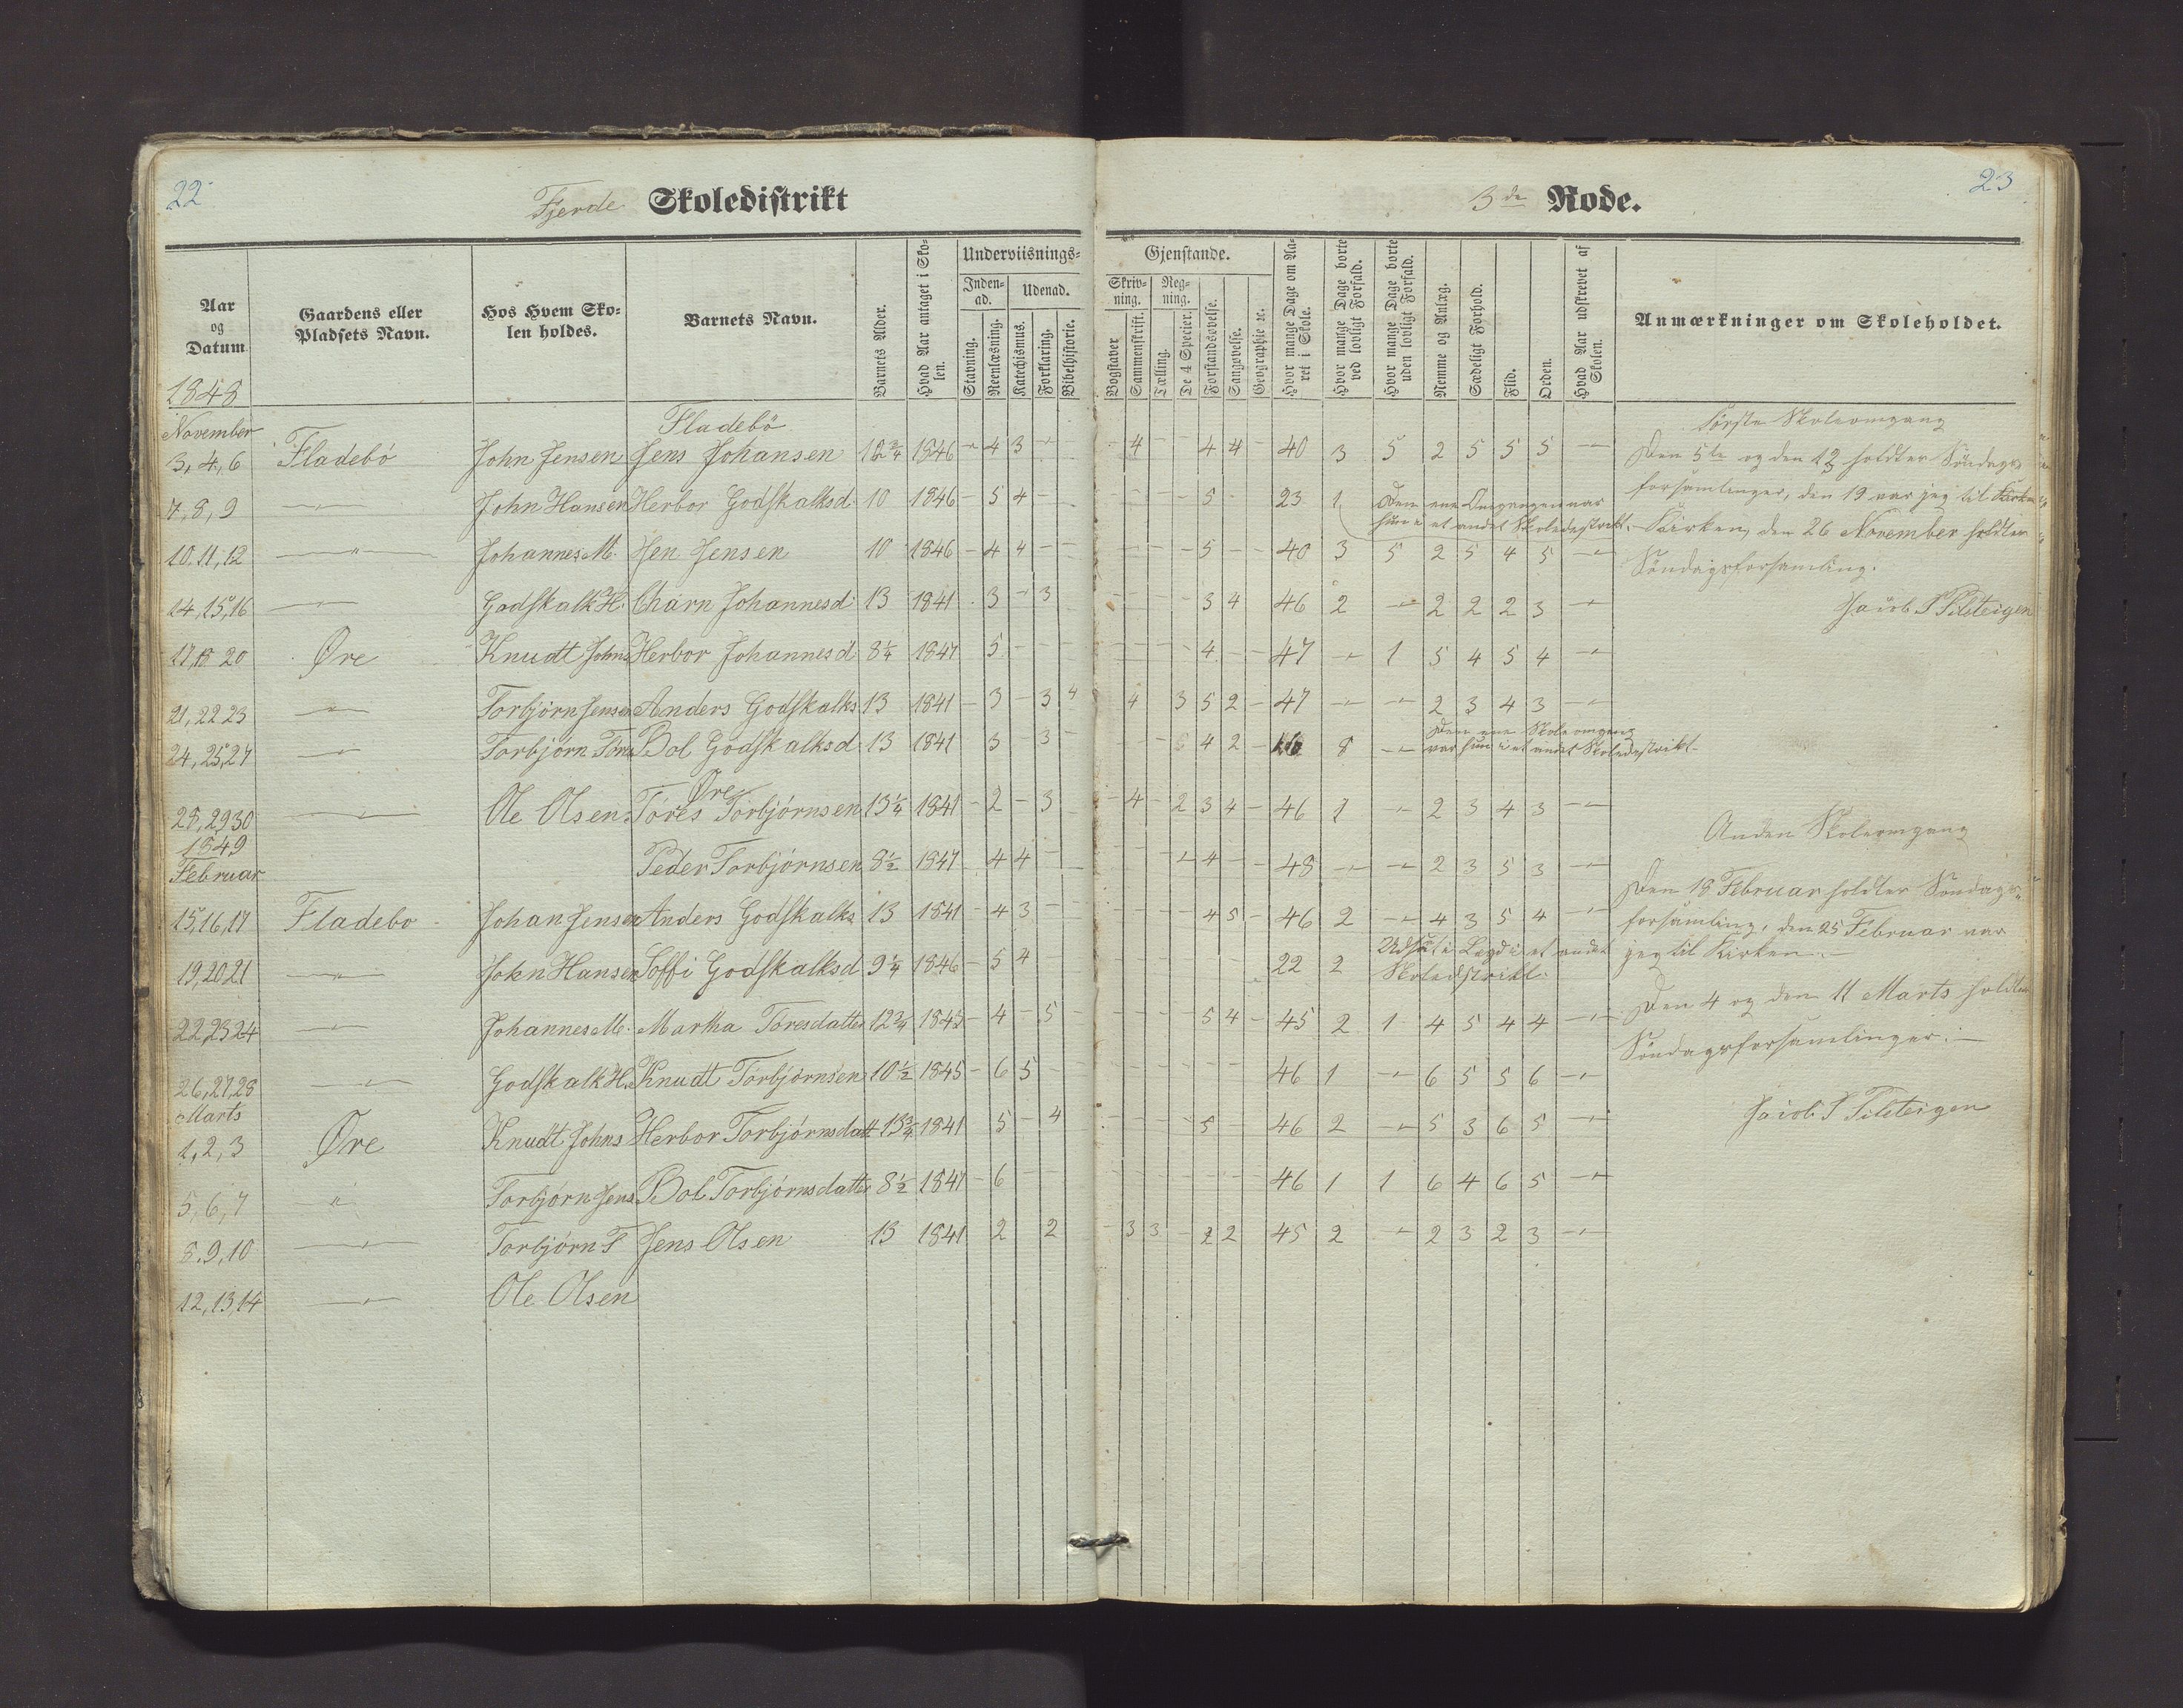 22
Fjerde Skoledistrikt
3de Rode.
23
Aar og Datum
Gaardens eller Pladsets Navn.
Hos Hvem Skolen holdes.
Barnets Navn.
Barnets Alder.
Hvad Aar antaget i Skolen.
Underviisnings-
Gjenstande.
Inden-ad.
Udenad.
Skriv-ning.
Reg-ning.
Stavning.
Reenlæsning.
Katechismus.
Forklaring.
Bibelhistorie.
Bogstaver
Sammenskrift.
Tælling.
De 4 Specier.
Forstandsøvelse.
Sangøvelse.
Geographie &c.
Hvor mange Dage om Aaret i Skole.
Hvor mange Dage borte ved lovligt Forfald.
Hvor mange Dage borte uden lovligt Forfald.
Nemme og Anlæg.
Sædeligt Forhold.
Flid.
Orden.
Hvad Aar udskrevet af Skolen.
Anmærkninger om Skoleholdet.
1848
November
Fladebö
3, 4, 6 Fladebö John Jensen Jens Johansen 12 3/4 1846 - 4 3 - - - 4 - - 4 4 - 40 3 5 2 5 5 5 -"-
7, 8, 9 -"- John Hansen Herbor Godskalksd. 10 1846 - 5 4 - - - - - - 5 - - 23 1 Den ene Omgangen var
hun i et andet Skoledistrikt.
10, 11, 12 -"- Johannes M. Jen Jensen 10 1846 - 4 4 - - - - - - 5 - - 40 3 5 2 5 4 5 -"-
14, 15, 16 -"- Godskalk H. Charn Johannesd. 13 1841 - 3 - 3 - - - - 3 4 46 2 -"- 2 2 2 3 -"-
17, 18 20 Øre Knudt Johns Herbor Johannesd 8 1/4 1847 5 - - - - - - - 4 - - 47 -"- 1 5 4 5 4 -"-
21, 22 23 -"- Torbjörn Jensen Anders Godskalks 13 1841 - 3 - 3 4 4 3 5 2 - 47 -"- -"- 2 3 4 3 -"-
24, 25, 27 -"- Torbjörn Töres Bol Godskalksd 13 1841 3 - 3 - 4 2 - 8 -"- Den ene Skoleomgang
var hun i et andet Skoledistrikt.
Øre
28, 29 30 -"- Ole Olsen Töres Torbjörnsen 13 1/4 1841 - 2 - 3 - 4 - 2 3 4 - 46 1 -"- 2 3 4 3 -"-
1849
Februar
Peder Torbjörnsen 8 1/2 1847 - 4 4 - - - - - 4 - - 48 -"- -"- 2 3 5 3 -"-
15, 16, 17 Fladebo Johan Jensen Anders Godskalks 13 1841 - 4 3 - - - - - - 4 5 - 46 2 -"- 4 3 5 4 -"-
19, 20 21 -"- John Hansen Soffi Godskalksd 9 1/4 1846 - 5 4 - - - - - - - - 22 2 Udsat i Legd i et andet
Skoledistrikt.
22, 23 24 -"- Johannes M. Martha Töresdatter 12 3/4 1843 - 4 - 5 - - - - 5 4 - 45 2 1 4 5 4 4 -"-
26, 27, 28 -"- Godskalk H. Knudt Torbjörnsen 10 1/2 1845 - 6 5 - - - - - - - - 46 1 -"- 6 5 5 6 -"-
Marts
1, 2, 3 Øre Knudt Johns Herbor Torbjörnsdatt 13 3/4 1841 5 - 4 - - - - 5 - 46 2 -"- 5 3 6 5 -"-
5, 6, 7 -"- Torbjörn Jens Bol Torbjörnsdatter 8 1/2 1847 - 6 - - - - - - - - 46 1 1 6 4 6 5 -"-
8, 9, 10 -"- Torbjörn T Jens Olsen 13 1841 2 2 - 3 3 - 2 2 45 2 -"- 2 3 2 3 -"-
12, 13, 14 -"- Ole Olsen
Første Skoleomgang
Den 5te og den 12 holdtes Söndags-
forsamlinger, den 19 var jeg til Kirke
Kirken, den 26 November holdtes
Söndagsforsamling.
Jacob T Tilsteigen
Anden Skoleomgang
Den 18 Februar holdtes Söndags-
forsamling, den 25 Februar var
jeg til Kirken.
Den 4 og den 11 Marts holdtes
Söndagsforsamlinger.
Jacob T Tilsteigen